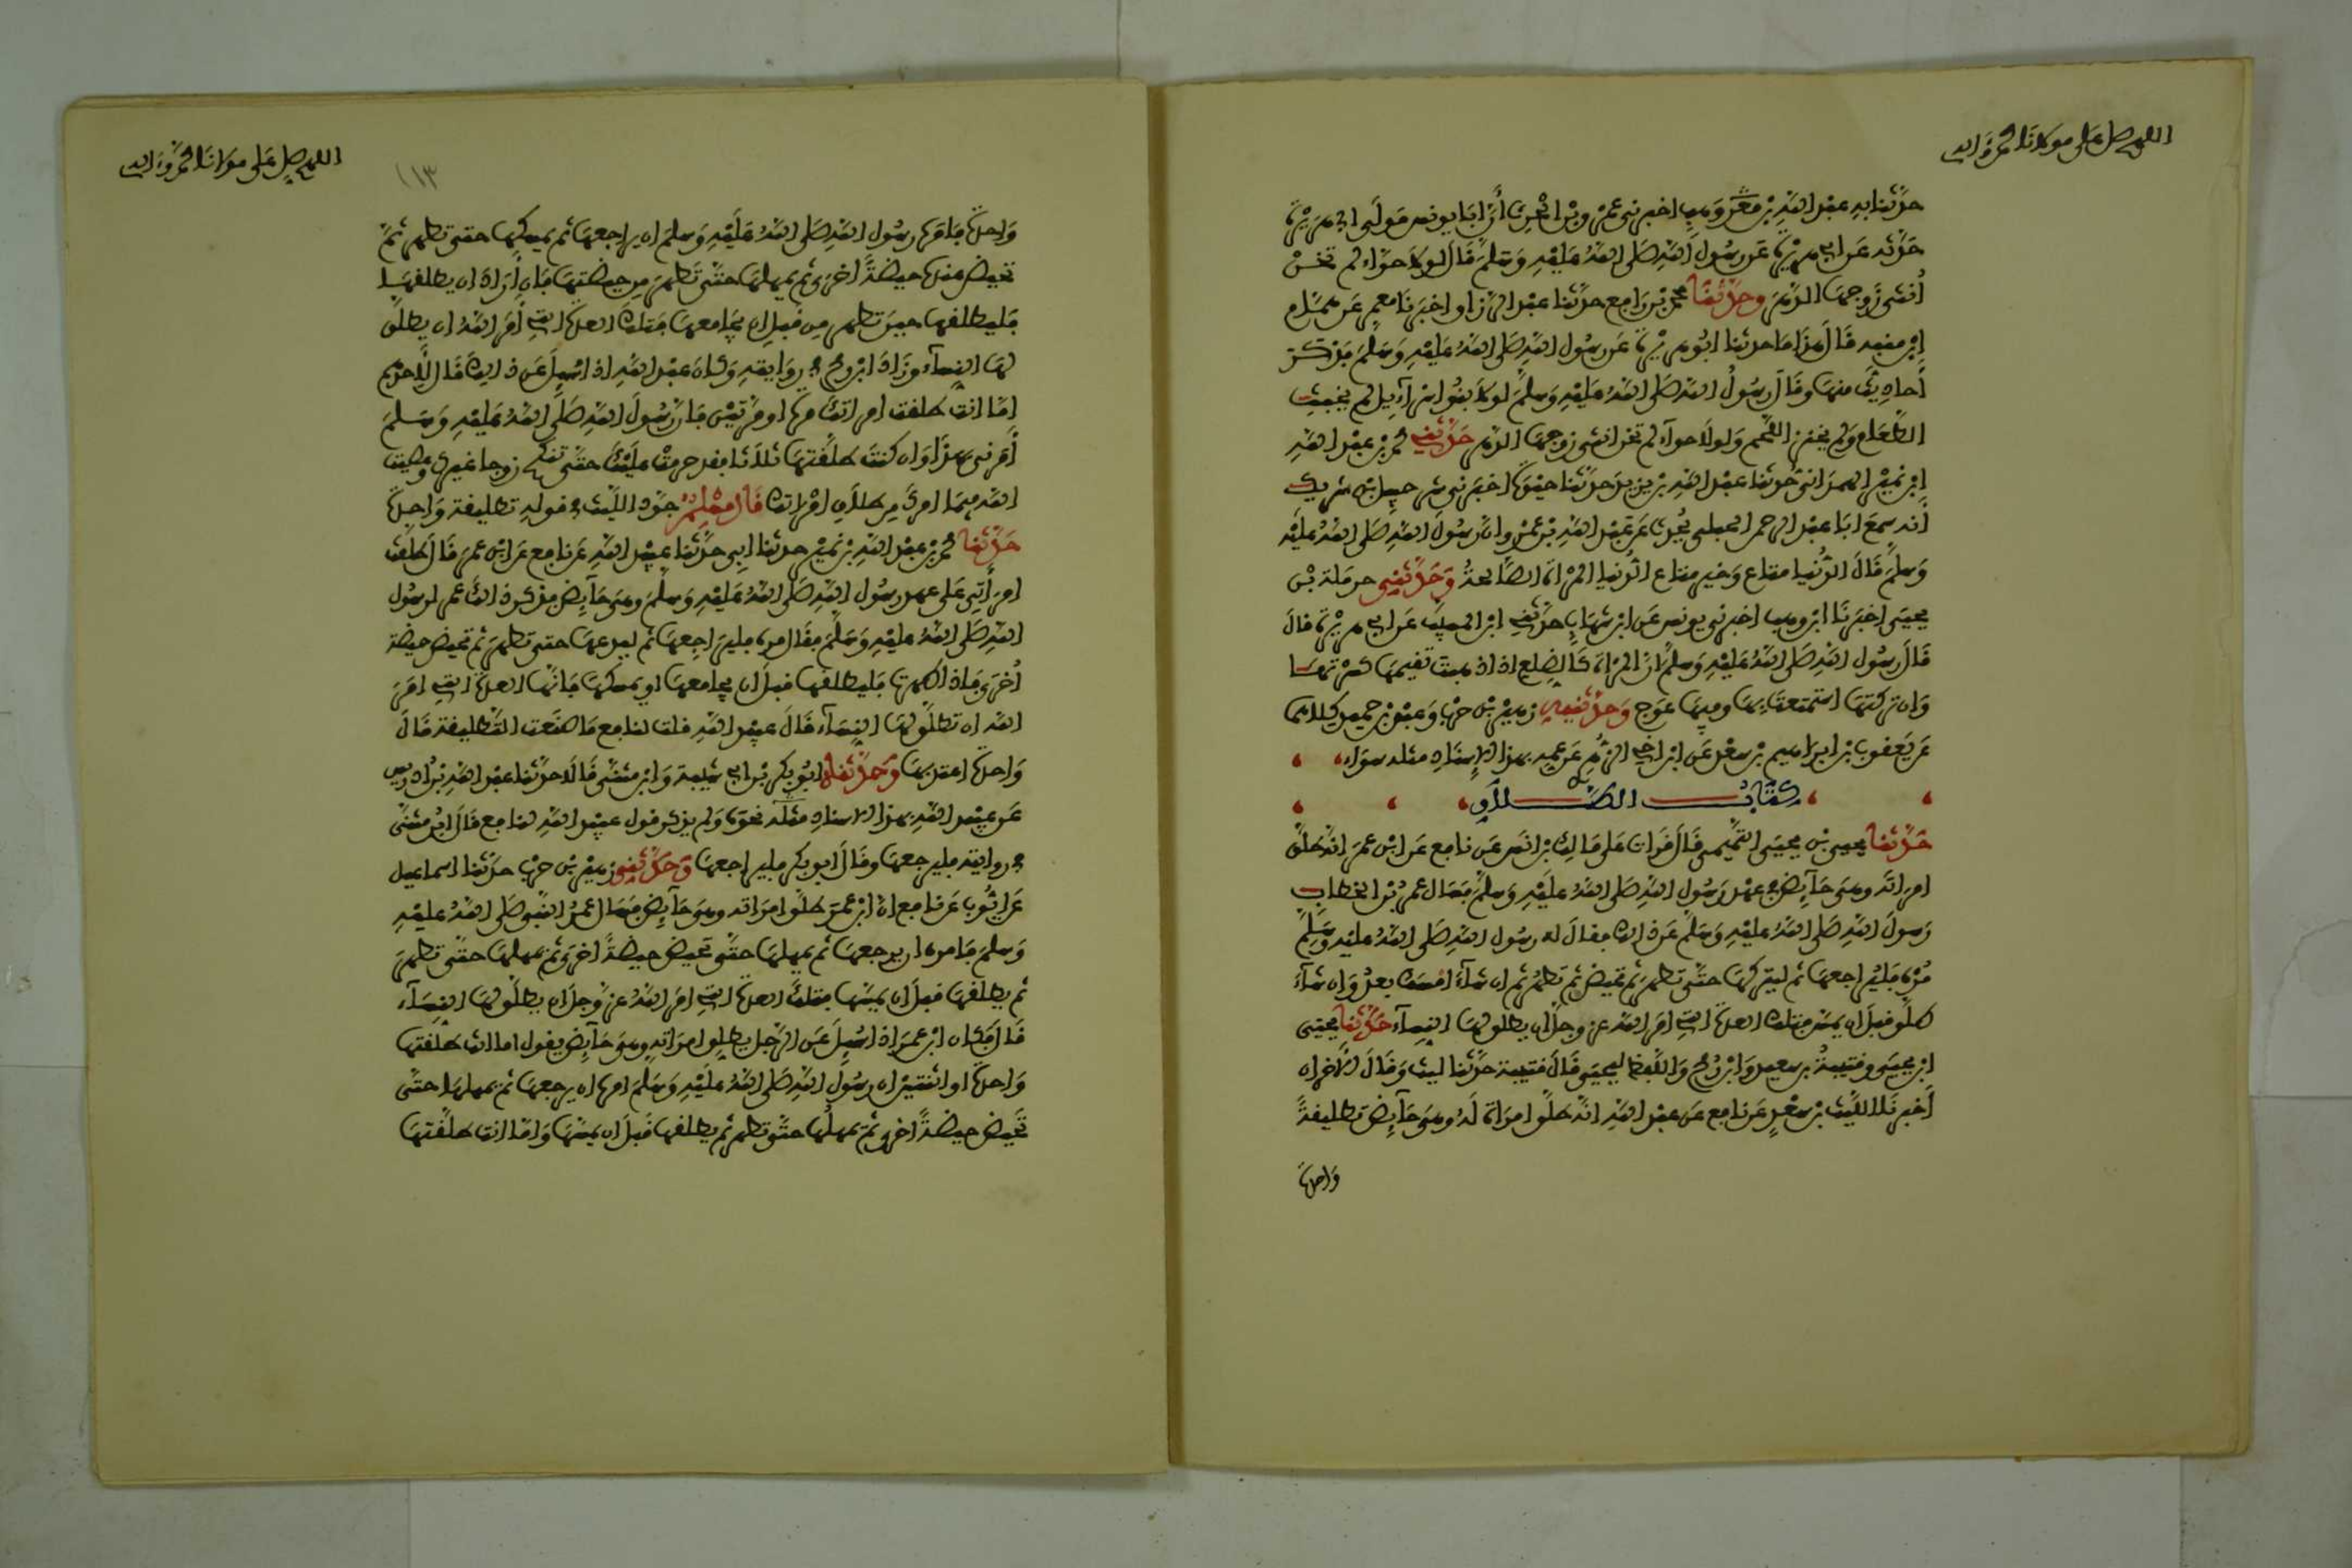 اللهم صل على مولانا محمد وآله
حدثنا به عبد الله بن وهب اخبرني عمرو بن الحرث أن ابا يونس مولى ابي هريرة
حدثه عن ابي هريرة عن رسول الله صلى الله عليه وسلم قال لولا حواء لم تخن
أنثى زوجها الدهر وحدثنا محمد بن رافع حدثنا عبد الرزاق اخبرنا معمر عن همام
ابن منبه قال هذا ما حدثنا ابو هريرة عن رسول الله صلى الله عليه وسلم فذكر
أحاديث منها وقال رسول الله صلى الله عليه وسلم لولا بنوا اسرآءيل لم يخبث
الطعام ولم يخنز اللحم ولولا حوآء لم تخن انثى زوجها الدهر حدثني محمد بن عبد الله
ابن نمير الهمداني حدثنا عبد الله بن يزيد حدثنا حيوة اخبرني شرحبيل بن شريك
أنه سمع ابا عبد الرحمن الحبلي يحدث عن عبد الله بن عمرو ان رسول الله صلى الله عليه
وسلم قال الدنيا متاع وخير متاع الدنيا المرأة الصالحة وحدثني حرملة بن
يحيى اخبرنا ابن وهب اخبرني يونس عن ابن شهاب حدثني ابن المسيب عن ابي هريرة قال
قال رسول الله صلى الله عليه وسلم ان المرأة كالضلع اذا ذهبت تقيمها كسرتها
وان تركتها استمتعت بها وفيها عوج وحدثنيه زهير بن حرب وعبد بن حميد كلاهما
عن يعقوب بن ابراهيم بن سعد عن ابن اخي الزهري عن عمه بهذا الاسناد مثله سواء
كتاب الطلاق
حدثنا يحيى بن يحيى التميمي قال قرات على مالك بن انس عن نافع عن ابن عمر انه طلق
امراته وهي حآئض في عهد رسول الله صلى الله عليه وسلم فسال عمر بن الخطاب
رسول الله صلى الله عليه وسلم عن ذلك فقال له رسول الله صلى الله عليه وسلم
مره فليراجعها ثم ليتركها حتى تطهر ثم تحيض ثم تطهر ثم ان شآء امسك بعد وان شآء
طلق قبل ان يمس فتلك العدة التي امر الله عز وجل ان يطلق لها النسآء حدثنا يحيى
ابن يحيى وقتيبة بن سعيد وابن رمح واللفظ ليحيى قال قتيبة حدثنا ليث وقال الاخران
أخبرنا الليث بن سعد عن نافع عن عبد الله انه طلق امراة له وهي حآئض تطليقة
واحدة
اللهم صل على مولانا محمد وآله
١١٣
واحدة فامره رسول الله صلى الله عليه وسلم ان يراجعها ثم يمسكها حتى تطهر ثم
تحيض عنده حيضة اخرى ثم يمهلها حتى تطهر من حيضتها فان أراد ان يطلقها
فليطلقها حين تطهر من قبل ان يجامعها فتلك العدة التي أمر الله ان يطلق
لها النسآء وزاد ابن رمح في روايته وكان عبد الله اذا سئل عن ذلك قال لاحدهم
اما انت طلقت امراتك مرة او مرتين فان رسول الله صلى الله عليه وسلم
أمرني بهذا وان كنت طلقتها ثلاثا فقد حرمت عليك حتى تنكح زوجا غيرك وعصيت
الله فيما امرك من طلاق امراتك قال مسلم جود الليث في قوله تطليقة واحدة
حدثنا محمد بن عبد الله بن نمير حدثنا ابي حدثنا عبيد الله عن نافع عن ابن عمر قال طلقت
امرأتي على عهد رسول الله صلى الله عليه وسلم وهي حآئض فذكر ذلك عمر لرسول
الله صلى الله عليه وسلم فقال مره فليراجعها ثم ليدعها حتى تطهر ثم تحيض حيضة
أخرى فاذا طهرت فليطلقها قبل ان يجامعها او يمسكها فانها العدة التي امر
الله ان تطلق لها النسآء قال عبيد الله قلت لنافع ما صنعت التطليقة قال
واحدة اعتد بها وحدثناه ابو بكر بن ابي شيبة وابن مثنى قالا حدثنا عبد الله بن ادريس
عن عبيد الله بهذا الاسناد نحوه ولم يذكر قول عبيد الله لنافع قال ابن مثنى
في روايته فليرجعها وقال ابو بكر فليراجعها وحدثني زهير بن حرب حدثنا اسماعيل
عن ايوب عن نافع ان ابن عمر طلق امراته وهي حآئض فسال عمر النبي صلى الله عليه
وسلم فامره ان يرجعها ثم يمهلها حتى تحيض حيضة اخرى ثم يمهلها حتى تطهر
ثم يطلقها قبل ان يمسها فتلك العدة التي امر الله عز وجل ان يطلق لها النسآء
قال فكان ابن عمر اذا سئل عن الرجل يطلق امراته وهي حآئض يقول اما انت طلقتها
واحدة او اثنتين ان رسول الله صلى الله عليه وسلم امره ان يرجعها ثم يمهلها حتى
تحيض حيضة اخرى ثم يمهلها حتى تطهر ثم يطلقها قبل ان يمسها واما انت طلقتها